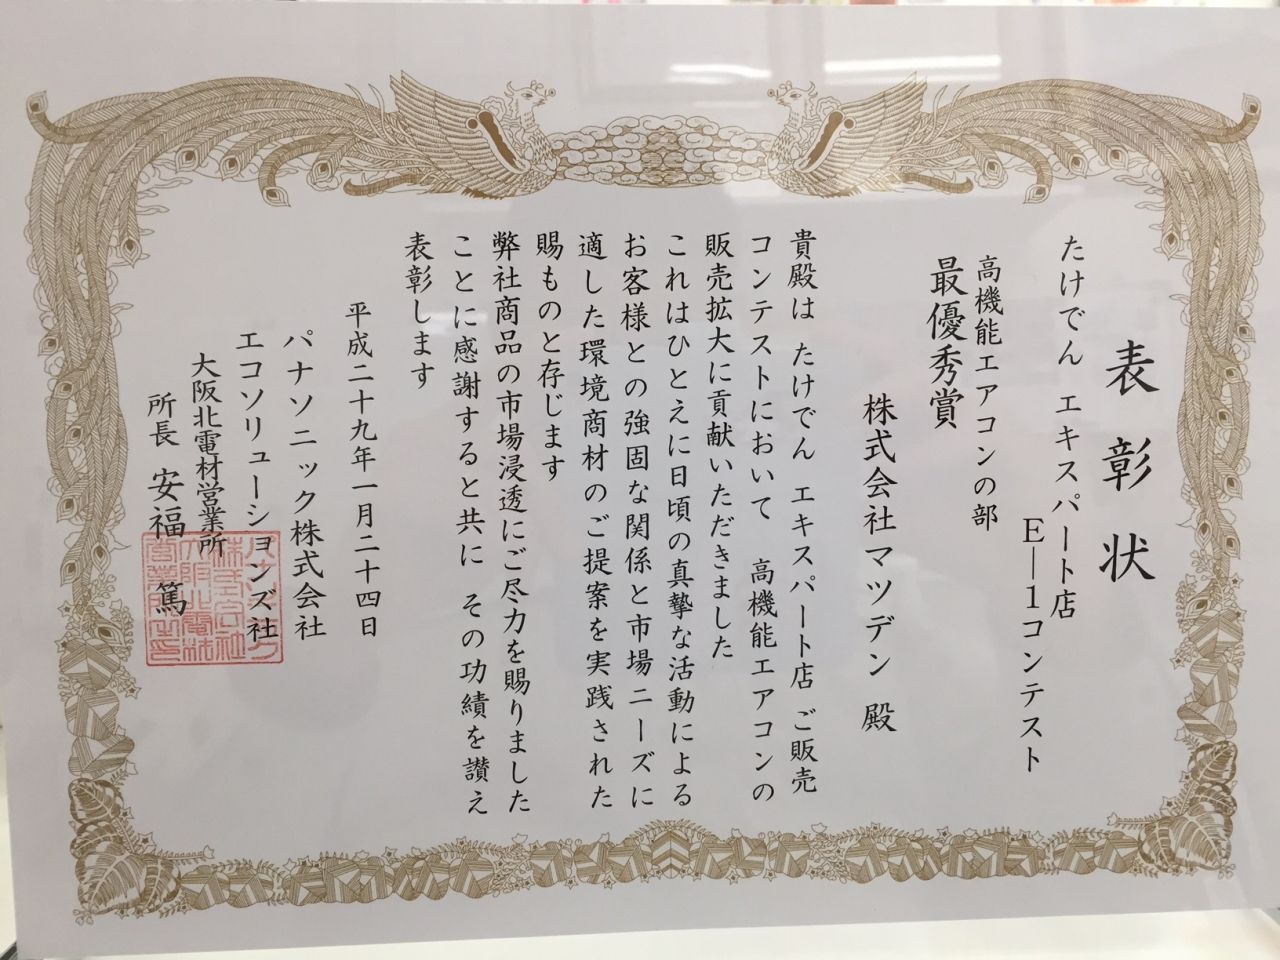 表彰状
たけでん エキスパート店
E－1コンテスト
高機能エアコンの部
最優秀賞
株式会社マツデン 殿
貴殿は たけでん エキスパート店 ご販売
コンテストにおいて 高機能エアコンの
販売拡大に貢献いただきました
これはひとえに日頃の真摯な活動による
お客様との強固な関係と市場ニーズに
適した環境商材のご提案を実践された
賜ものと存じます
弊社商品の市場浸透にご尽力を賜りました
ことに感謝すると共に その功績を讃え
表彰します
平成二十九年一月二十四日
パナソニック株式会社
エコソリューションズ社
大阪北電材営業所
所長 安福 篤